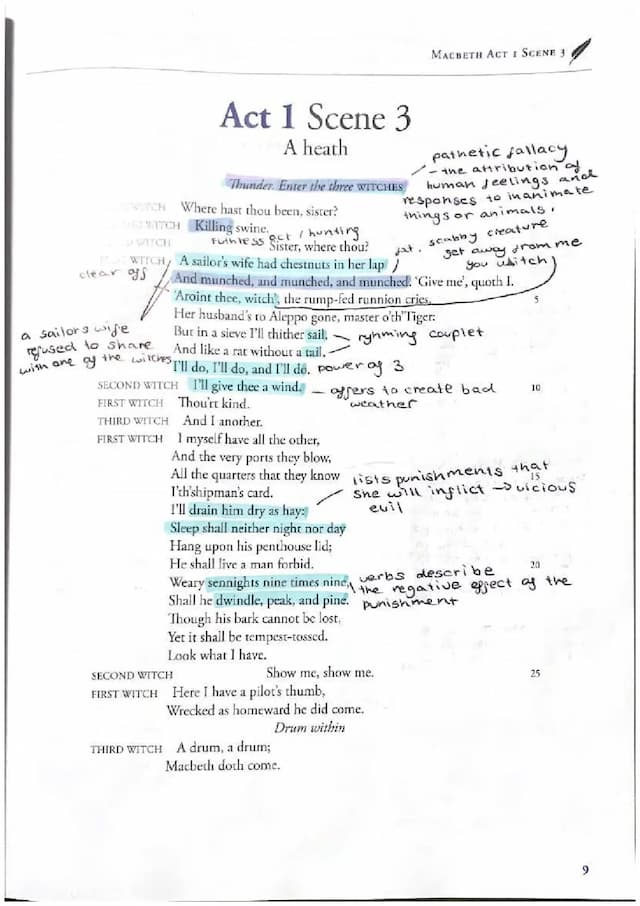 MACBETH ACT 1 SCENE 3
Act 1 Scene 3
A heath
pathetic fallacy
- the attribution of
human feelings and
responses to inanimate
things or animals.
Thunder. Enter the three WITCHES
WITCH Where hast thou been, sister?
WITCH Killing swine.
ruthless act / hunting
WITCH Sister, where thou?
fat, scabby creature
get away from me
you witch
WITCH A sailor's wife had chestnuts in her lap
clear off
And munched, and munched, and munched. 'Give me', quoth I.
'Aroint thee, witch', the rump-fed runnion cries. 5
Her husband's to Aleppo gone, master o'th'Tiger:
a sailors wife
refused to share
with one of the witches
But in a sieve I'll thither sail, - ryhming couplet
And like a rat without a tail,
I'll do, I'll do, and I'll do. power of 3
SECOND WITCH I'll give thee a wind. 10
- offers to create bad
weather
FIRST WITCH Thou'rt kind.
THIRD WITCH And I another.
FIRST WITCH I myself have all the other,
And the very ports they blow,
All the quarters that they know 15
I'th'shipman's card.
lists punishments that
she will inflict → vicious
evil
I'll drain him dry as hay:
Sleep shall neither night nor day
Hang upon his penthouse lid;
He shall live a man forbid. 20
Weary sennights nine times nine,
Shall he dwindle, peak, and pine.
verbs describe
the negative effect of the
punishment
Though his bark cannot be lost,
Yet it shall be tempest-tossed.
Look what I have.
SECOND WITCH Show me, show me. 25
FIRST WITCH Here I have a pilot's thumb,
Wrecked as homeward he did come.
Drum within
THIRD WITCH A drum, a drum;
Macbeth doth come.
9